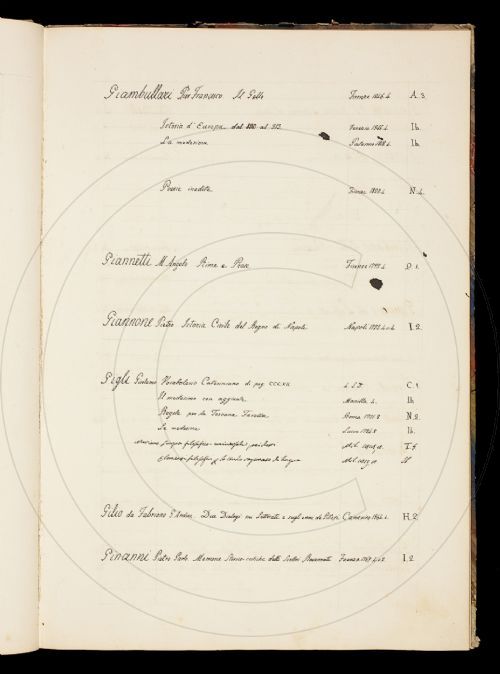 Giambullari Pier Francesco Il Gello Firenze 1546.4 A.3.
Istoria d'Europa dal 800 al 913 Venezia 1566.4 Ib.
La medesima Palermo 4. Ib.
Poesie inedite Firenze 1820.4 N.4.
Giannetti M. Angelo Rime e Prose Firenze 4. 1.
Giannone Pietro Istoria Civile del Regno di Napoli Napoli 1723.4 I.2.
Gigli Girolamo Vocabolario Cateriniano di pag. CCCXX 4. S.D. C.1.
Il medesimo con aggiunte Manilla 4. Ib.
Regole per la Toscana Favella Roma 1721.8 N.2.
Le medesime Lucca 8 Ib.
Lingua filosofico-universale pei dotti
di lingua
Gilio da Fabriano Due Dialogi Camerino 1564.4. H.2.
Ginanni Pietro Paolo Memorie Storico-critiche degli Scrittori Ravennati Faenza 1769.4 I.2.